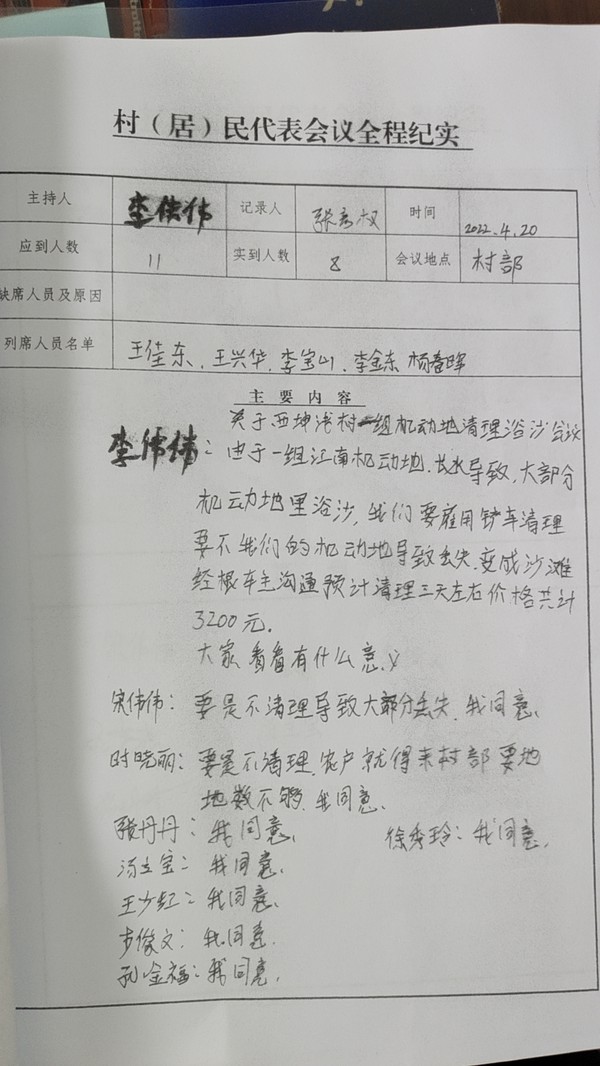 村（居）民代表会议全程纪实
主持人 李伟伟 记录人 张彦权 时间 2022.4.20
应到人数 11 实到人数 8 会议地点 村部
缺席人员及原因
列席人员名单 王佳东、王兴华、李宝山、李金东 杨春晖
主要内容
关于西坤浅村一组机动地清理浴沙会议
李伟伟：由于一组江南机动地、长水导致，大部分
机动地里浴沙，我们要雇用铲车清理
要不我们的机动地导致丢失，变成沙滩
经根车主沟通预计清理三天左右价格共计
3200元。
大家看看有什么意义
宋伟伟：要是不清理导致大部分丢失，我同意、
时晓丽：要是不清理，农户就得来村部要地
地数不够，我同意、
张丹丹：我同意、 徐秀玲：我同意、
汤立宝：我同意、
王少红：我同意、
步俊文：我同意
孔金福：我同意、